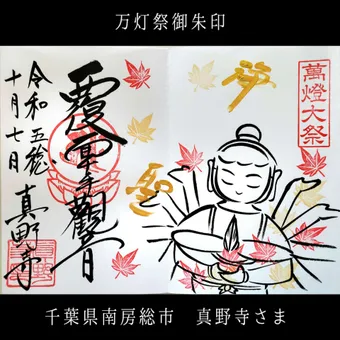 万灯祭御朱印
萬燈大祭
夢
覆面觀音
令和五歳
十月七日
真野寺
千葉県南房総市　真野寺さま